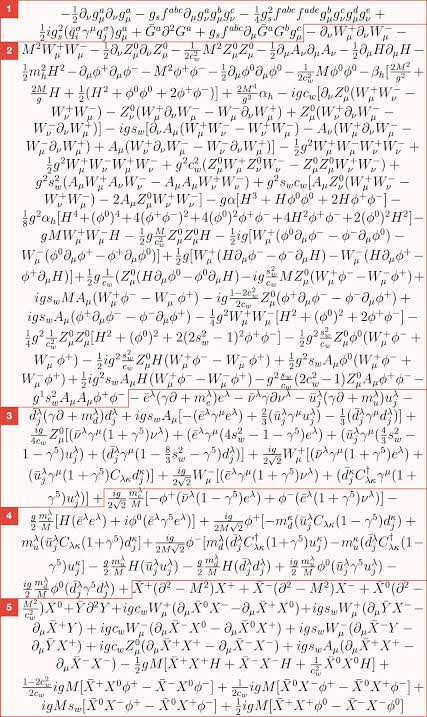 1 −½∂_νg^a_μ∂_νg^a_μ − g_s f^{abc}∂_μg^a_νg^b_μg^c_ν − ¼g²_s f^{abc}f^{ade}g^b_μg^c_νg^d_μg^e_ν +
½ig²_s(q̄^σ_iγ^μq^σ_j)g^a_μ + Ḡ^a∂²G^a + g_s f^{abc}∂_μḠ^aG^bg^c_μ − ∂_νW⁺_μ∂_νW⁻_μ −
2 M²W⁺_μW⁻_μ − ½∂_νZ⁰_μ∂_νZ⁰_μ − 1/(2c²_w) M²Z⁰_μZ⁰_μ − ½∂_μA_ν∂_μA_ν − ½∂_μH∂_μH −
½m²_hH² − ∂_μφ⁺∂_μφ⁻ − M²φ⁺φ⁻ − ½∂_μφ⁰∂_μφ⁰ − 1/(2c²_w) Mφ⁰φ⁰ − β_h[2M²/g² +
2M/g H + ½(H² + φ⁰φ⁰ + 2φ⁺φ⁻)] + 2M⁴/g² α_h − igc_w[∂_νZ⁰_μ(W⁺_μW⁻_ν −
W⁺_νW⁻_μ) − Z⁰_ν(W⁺_μ∂_νW⁻_μ − W⁻_μ∂_νW⁺_μ) + Z⁰_μ(W⁺_ν∂_νW⁻_μ −
W⁻_ν∂_νW⁺_μ)] − igs_w[∂_νA_μ(W⁺_μW⁻_ν − W⁺_νW⁻_μ) − A_ν(W⁺_μ∂_νW⁻_μ −
W⁻_μ∂_νW⁺_μ) + A_μ(W⁺_ν∂_νW⁻_μ − W⁻_ν∂_νW⁺_μ)] − ½g²W⁺_μW⁻_μW⁺_νW⁻_ν +
½g²W⁺_μW⁻_νW⁺_μW⁻_ν + g²c²_w(Z⁰_μW⁺_μZ⁰_νW⁻_ν − Z⁰_μZ⁰_μW⁺_νW⁻_ν) +
g²s²_w(A_μW⁺_μA_νW⁻_ν − A_μA_μW⁺_νW⁻_ν) + g²s_wc_w[A_μZ⁰_ν(W⁺_μW⁻_ν −
W⁺_νW⁻_μ) − 2A_μZ⁰_μW⁺_νW⁻_ν] − gα[H³ + Hφ⁰φ⁰ + 2Hφ⁺φ⁻] −
⅛g²α_h[H⁴+(φ⁰)⁴+4(φ⁺φ⁻)²+4(φ⁰)²φ⁺φ⁻+4H²φ⁺φ⁻+2(φ⁰)²H²] −
gMW⁺_μW⁻_μH − ½g M/c²_w Z⁰_μZ⁰_μH − ½ig[W⁺_μ(φ⁰∂_μφ⁻ − φ⁻∂_μφ⁰) −
W⁻_μ(φ⁰∂_μφ⁺ − φ⁺∂_μφ⁰)] + ½g[W⁺_μ(H∂_μφ⁻ − φ⁻∂_μH) − W⁻_μ(H∂_μφ⁺ −
φ⁺∂_μH)] + ½g 1/c_w (Z⁰_μ(H∂_μφ⁰ − φ⁰∂_μH) − ig s²_w/c_w MZ⁰_μ(W⁺_μφ⁻ − W⁻_μφ⁺) +
igs_wMA_μ(W⁺_μφ⁻ − W⁻_μφ⁺) − ig (1−2c²_w)/(2c_w) Z⁰_μ(φ⁺∂_μφ⁻ − φ⁻∂_μφ⁺) +
igs_wA_μ(φ⁺∂_μφ⁻ − φ⁻∂_μφ⁺) − ¼g²W⁺_μW⁻_μ[H² + (φ⁰)² + 2φ⁺φ⁻] −
¼g² 1/c²_w Z⁰_μZ⁰_μ[H² + (φ⁰)² + 2(2s²_w − 1)²φ⁺φ⁻] − ½g² s²_w/c_w Z⁰_μφ⁰(W⁺_μφ⁻ +
W⁻_μφ⁺) − ½ig² s²_w/c_w Z⁰_μH(W⁺_μφ⁻ − W⁻_μφ⁺) + ½g²s_wA_μφ⁰(W⁺_μφ⁻ +
W⁻_μφ⁺) + ½ig²s_wA_μH(W⁺_μφ⁻ − W⁻_μφ⁺) − g² s_w/c_w (2c²_w − 1)Z⁰_μA_μφ⁺φ⁻ −
g¹s²_wA_μA_μφ⁺φ⁻ − ē^λ(γ∂ + m^λ_e)e^λ − ν̄^λγ∂ν^λ − ū^λ_j(γ∂ + m^λ_u)u^λ_j −
3 d̄^λ_j(γ∂ + m^λ_d)d^λ_j + igs_wA_μ[−(ē^λγ^μe^λ) + ⅔(ū^λ_jγ^μu^λ_j) − ⅓(d̄^λ_jγ^μd^λ_j)] +
ig/(4c_w) Z⁰_μ[(ν̄^λγ^μ(1 + γ⁵)ν^λ) + (ē^λγ^μ(4s²_w − 1 − γ⁵)e^λ) + (ū^λ_jγ^μ(4/3 s²_w −
1 − γ⁵)u^λ_j) + (d̄^λ_jγ^μ(1 − 8/3 s²_w − γ⁵)d^λ_j)] + ig/(2√2) W⁺_μ[(ν̄^λγ^μ(1 + γ⁵)e^λ) +
(ū^λ_jγ^μ(1 + γ⁵)C_{λκ}d^κ_j)] + ig/(2√2) W⁻_μ[(ē^λγ^μ(1 + γ⁵)ν^λ) + (d̄^κ_jC†_{λκ}γ^μ(1 +
γ⁵)u^λ_j)] + ig/(2√2) m^λ_e/M [−φ⁺(ν̄^λ(1 − γ⁵)e^λ) + φ⁻(ē^λ(1 + γ⁵)ν^λ)] −
4 g/2 m^λ_e/M [H(ē^λe^λ) + iφ⁰(ē^λγ⁵e^λ)] + ig/(2M√2) φ⁺[−m^κ_d(ū^λ_jC_{λκ}(1 − γ⁵)d^κ_j) +
m^λ_u(ū^λ_jC_{λκ}(1 + γ⁵)d^κ_j] + ig/(2M√2) φ⁻[m^λ_d(d̄^λ_jC†_{λκ}(1 + γ⁵)u^κ_j) − m^κ_u(d̄^λ_jC†_{λκ}(1 −
γ⁵)u^κ_j] − g/2 m^λ_u/M H(ū^λ_ju^λ_j) − g/2 m^λ_d/M H(d̄^λ_jd^λ_j) + ig/2 m^λ_u/M φ⁰(ū^λ_jγ⁵u^λ_j) −
ig/2 m^λ_d/M φ⁰(d̄^λ_jγ⁵d^λ_j) + X̄⁺(∂² − M²)X⁺ + X̄⁻(∂² − M²)X⁻ + X̄⁰(∂² −
5 M²/c²_w)X⁰ + Ȳ∂²Y + igc_wW⁺_μ(∂_μX̄⁰X⁻ − ∂_μX̄⁺X⁰) + igs_wW⁺_μ(∂_μȲX⁻ −
∂_μX̄⁺Y) + igc_wW⁻_μ(∂_μX̄⁻X⁰ − ∂_μX̄⁰X⁺) + igs_wW⁻_μ(∂_μX̄⁻Y −
∂_μȲX⁺) + igc_wZ⁰_μ(∂_μX̄⁺X⁺ − ∂_μX̄⁻X⁻) + igs_wA_μ(∂_μX̄⁺X⁺ −
∂_μX̄⁻X⁻) − ½gM[X̄⁺X⁺H + X̄⁻X⁻H + 1/c²_w X̄⁰X⁰H] +
(1−2c²_w)/(2c_w) igM[X̄⁺X⁰φ⁺ − X̄⁻X⁰φ⁻] + 1/(2c_w) igM[X̄⁰X⁻φ⁺ − X̄⁰X⁺φ⁻] +
igMs_w[X̄⁰X⁻φ⁺ − X̄⁰X⁺φ⁻] + ½igM[X̄⁺X⁺φ⁰ − X̄⁻X⁻φ⁰]